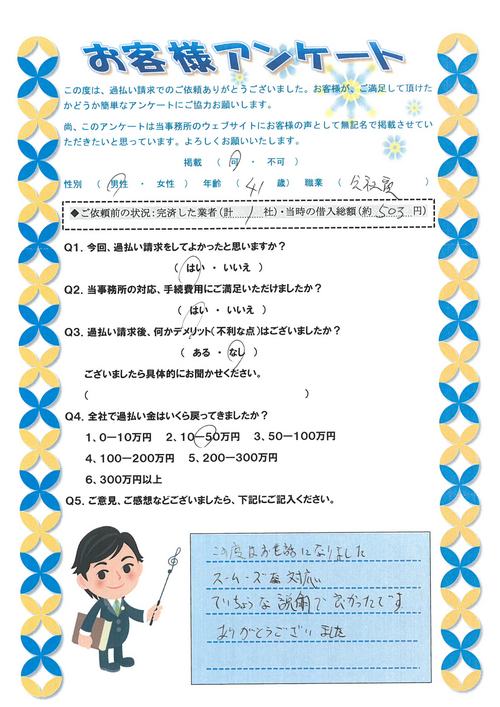 お客様アンケート
この度は、過払い請求でのご依頼ありがとうございました。お客様が、ご満足して頂けた
かどうか簡単なアンケートにご協力お願いします。
尚、このアンケートは当事務所のウェブサイトにお客様の声として無記名で掲載させてい
ただきたいと思っています。よろしくお願いいたします。
掲載 （ 可 ・ 不可 ）
性別 （ 男性 ・ 女性 ） 年齢 （ 41 歳） 職業 （ 会社員 ）
◆ご依頼前の状況：完済した業者（計 1 社）・当時の借入総額（約 503 円）
Q1. 今回、過払い請求をしてよかったと思いますか？
（ はい ・ いいえ ）
Q2. 当事務所の対応、手続費用にご満足いただけましたか？
（ はい ・ いいえ ）
Q3. 過払い請求後、何かデメリット（不利な点）はございましたか？
（ ある ・ なし ）
ございましたら具体的にお聞かせください。
（ ）
Q4. 全社で過払い金はいくら戻ってきましたか？
1、0－10万円 2、10－50万円 3、50－100万円
4、100－200万円 5、200－300万円
6、300万円以上
Q5. ご意見、ご感想などございましたら、下記にご記入ください。
この度はお世話になりました
スームーズな対応い
ていちょうな説明で良かったです
ありがとうございました